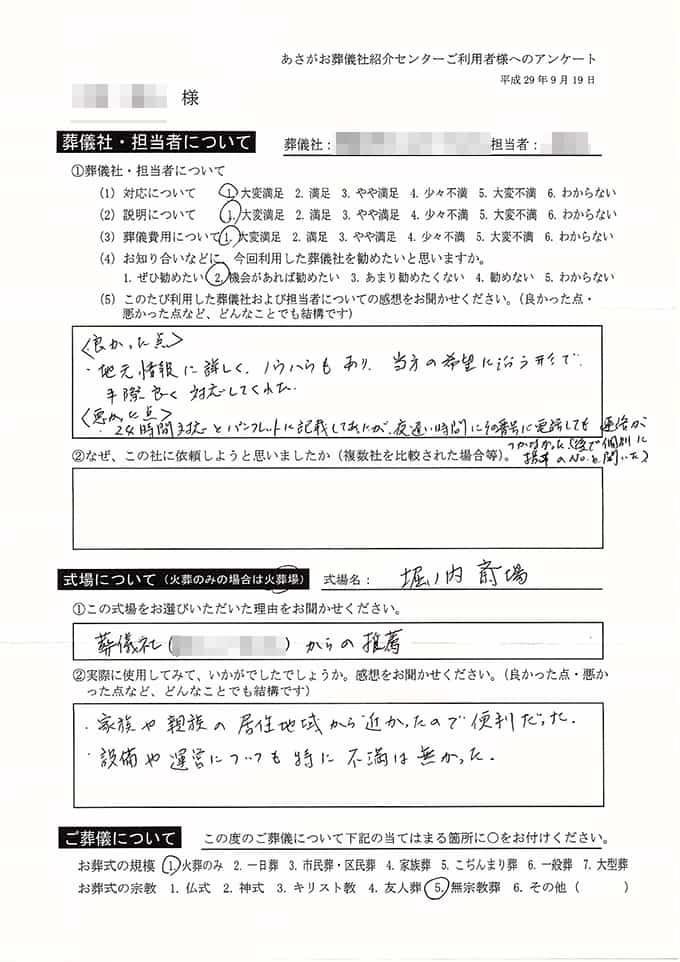 あさがお葬儀社紹介センターご利用者様へのアンケート
平成29年9月19日
様
葬儀社・担当者について 葬儀社： 担当者：
①葬儀社・担当者について
(1) 対応について 1. 大変満足 2. 満足 3. やや満足 4. 少々不満 5. 大変不満 6. わからない
(2) 説明について 1. 大変満足 2. 満足 3. やや満足 4. 少々不満 5. 大変不満 6. わからない
(3) 葬儀費用について 1. 大変満足 2. 満足 3. やや満足 4. 少々不満 5. 大変不満 6. わからない
(4) お知り合いなどに、今回利用した葬儀社を勧めたいと思いますか。
1. ぜひ勧めたい 2. 機会があれば勧めたい 3. あまり勧めたくない 4. 勧めない 5. わからない
(5) このたび利用した葬儀社および担当者についての感想をお聞かせください。（良かった点・
悪かった点など、どんなことでも結構です）
〈良かった点〉
・地元情報に詳しく、ノウハウもあり、当方の希望に沿う形で、
手際良く対応してくれた。
〈悪かった点〉
・24時間対応とパンフレットに記載してあったが、夜遅い時間にその番号に電話しても連絡が
つかなかった（後で個別に
携帯のNo.を聞いた）
②なぜ、この社に依頼しようと思いましたか（複数社を比較された場合等）。
式場について（火葬のみの場合は火葬場） 式場名： 堀ノ内斎場
①この式場をお選びいただいた理由をお聞かせください。
葬儀社（ ）からの推薦
②実際に使用してみて、いかがでしたでしょうか。感想をお聞かせください。（良かった点・悪か
った点など、どんなことでも結構です）
・家族や親族の居住地域から近かったので便利だった。
・設備や運営についても特に不満は無かった。
ご葬儀について この度のご葬儀について下記の当てはまる箇所に○をお付けください。
お葬式の規模 1. 火葬のみ 2. 一日葬 3. 市民葬・区民葬 4. 家族葬 5. こぢんまり葬 6. 一般葬 7. 大型葬
お葬式の宗教 1. 仏式 2. 神式 3. キリスト教 4. 友人葬 5. 無宗教葬 6. その他（ ）